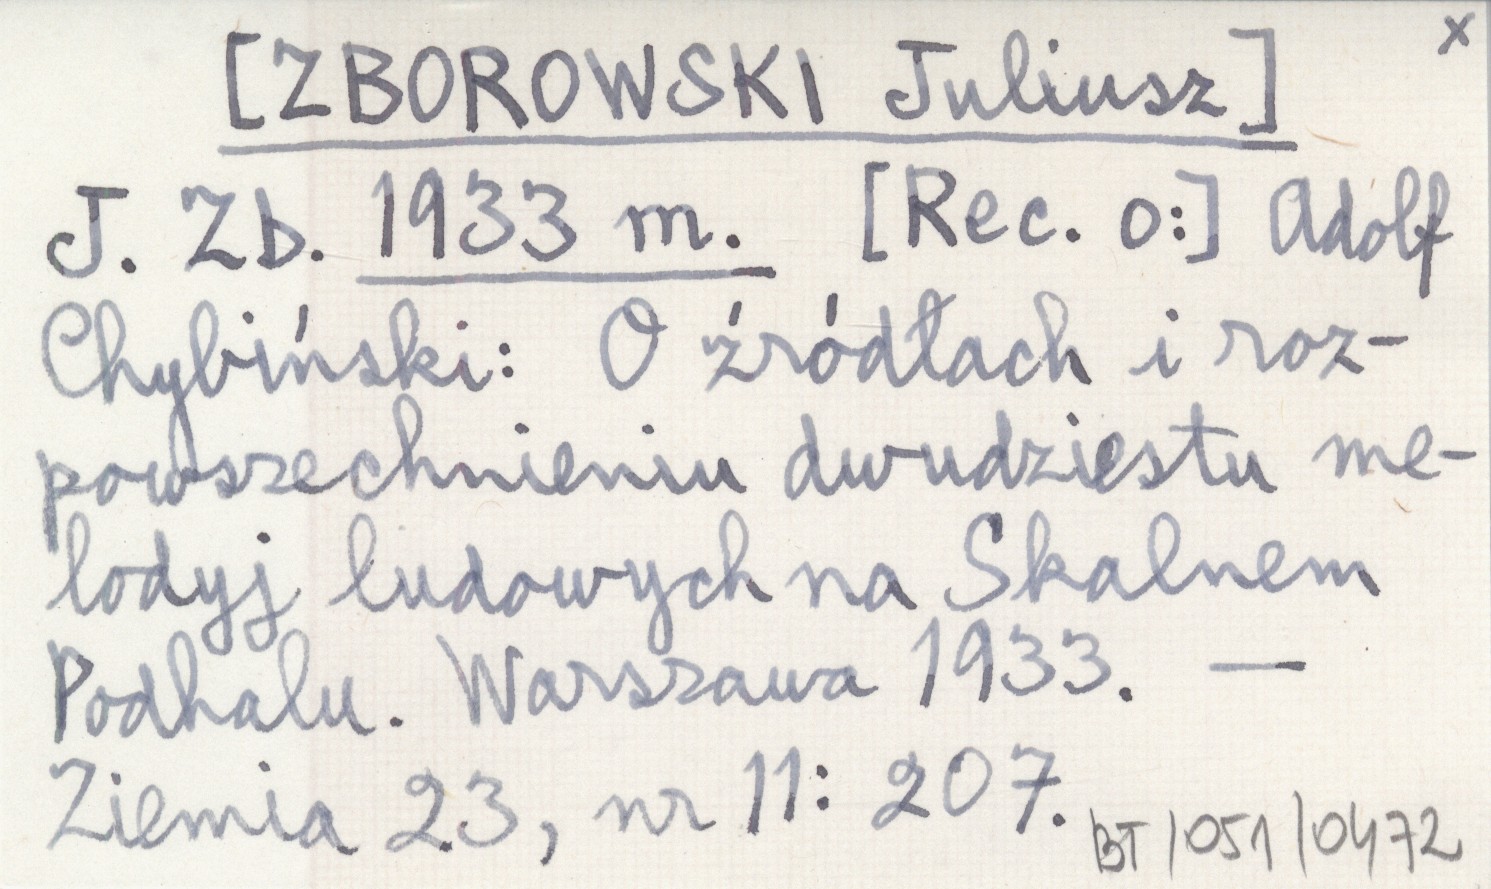 x
[ZBOROWSKI Juliusz]
J. Zb. 1933 m. [Rec. o:] Adolf
Chybiński: O źródłach i roz-
powszechnieniu dwudziestu me-
lodyj ludowych na Skalnem
Podhalu. Warszawa 1933. —
Ziemia 23, nr 11: 207.
BT/051/0472